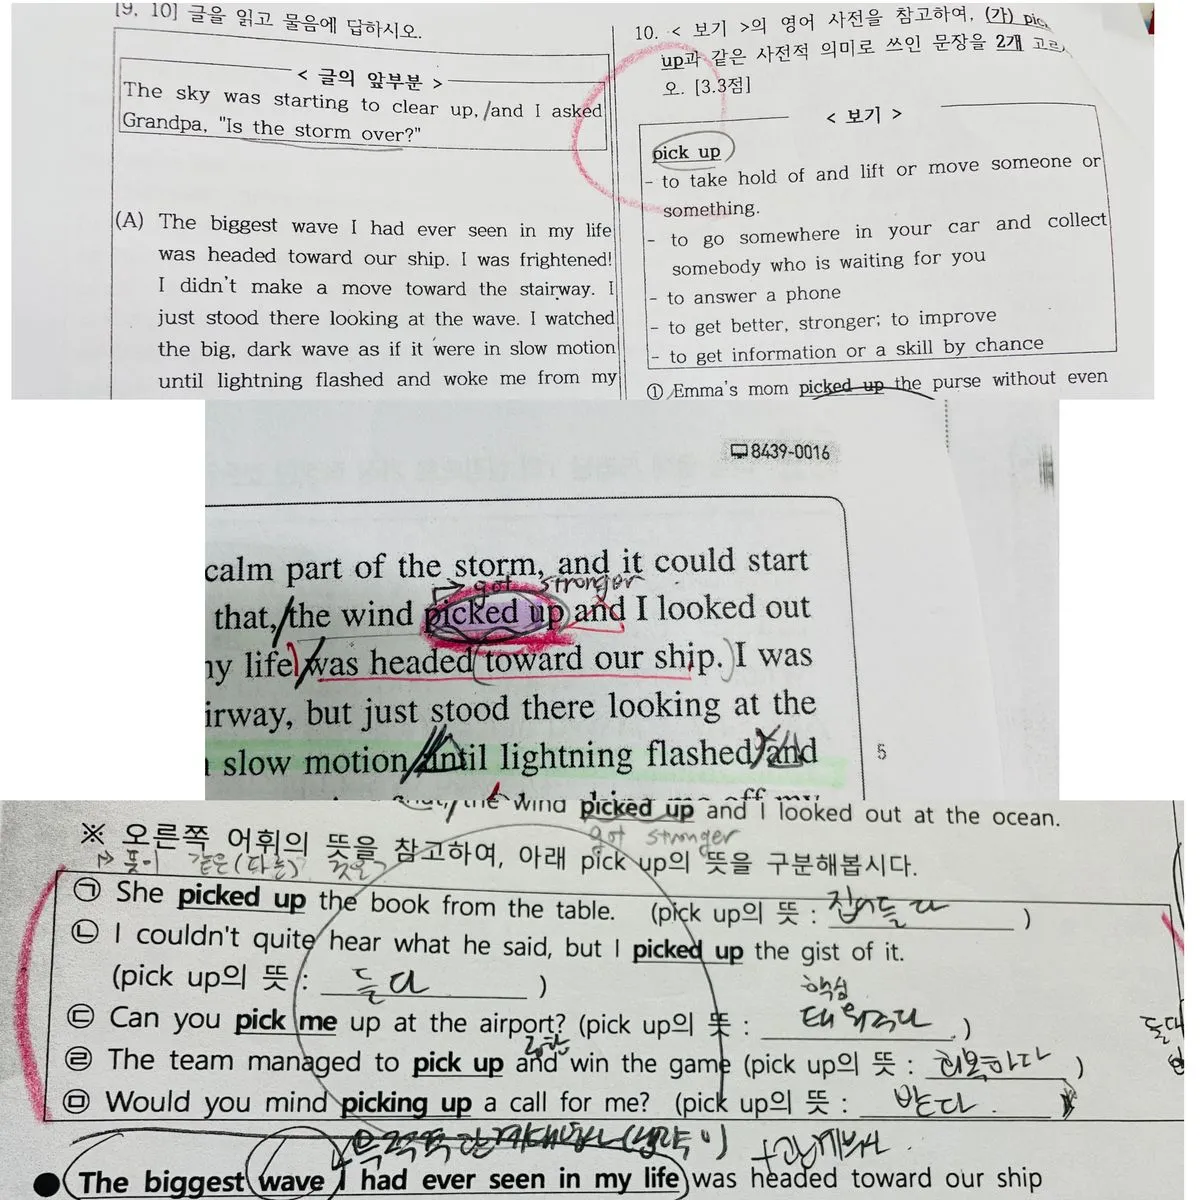 [9, 10] 글을 읽고 물음에 답하시오.
< 글의 앞부분 >
The sky was starting to clear up, and I asked
Grandpa, "Is the storm over?"
(A) The biggest wave I had ever seen in my life
was headed toward our ship. I was frightened!
I didn't make a move toward the stairway. I
just stood there looking at the wave. I watched
the big, dark wave as if it were in slow motion
until lightning flashed and woke me from my
10. < 보기 >의 영어 사전을 참고하여, (가)
up과 같은 사전적 의미로 쓰인 문장을 2개
오. [3.3점]
< 보기 >
pick up
- to take hold of and lift or move someone or
something.
- to go somewhere in your car and collect
somebody who is waiting for you
- to answer a phone
- to get better, stronger; to improve
- to get information or a skill by chance
① Emma's mom picked up the purse without even
8439-0016
calm part of the storm, and it could start
got stronger
that, the wind picked up and I looked out
life was headed toward our ship. I was
but just stood there looking at the
slow motion until lightning flashed and
5
the wind picked up and I looked out at the ocean.
got stronger
※ 오른쪽 어휘의 뜻을 참고하여, 아래 pick up의 뜻을 구분해봅시다.
㉠ She picked up the book from the table. (pick up의 뜻 : 집어들다 )
㉡ I couldn't quite hear what he said, but I picked up the gist of it.
핵심
(pick up의 뜻 : 듣다 )
㉢ Can you pick me up at the airport? (pick up의 뜻 : 태워주다 )
㉣ The team managed to pick up and win the game (pick up의 뜻 : 회복하다 )
㉤ Would you mind picking up a call for me? (pick up의 뜻 : 받다 )
● The biggest wave I had ever seen in my life was headed toward our ship